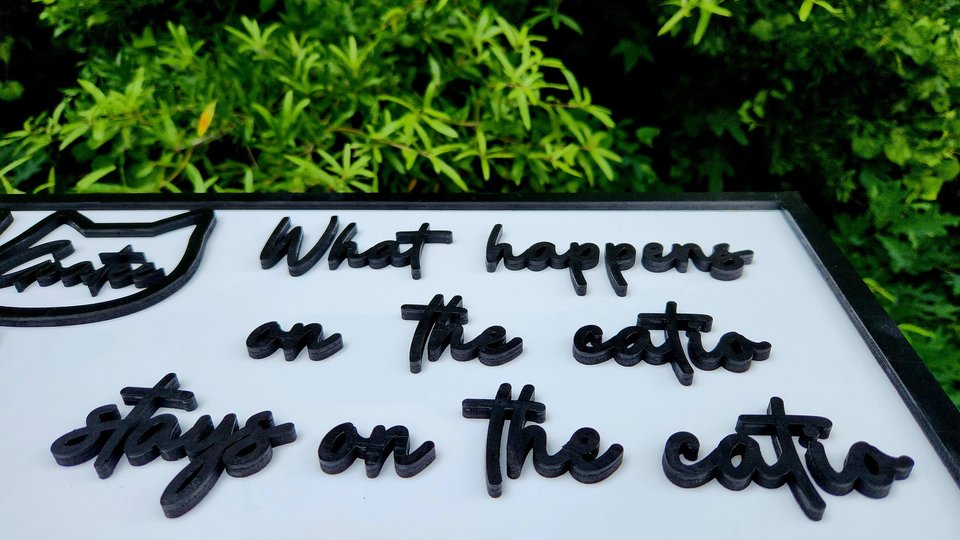 What happens
on the catio
stays on the catio